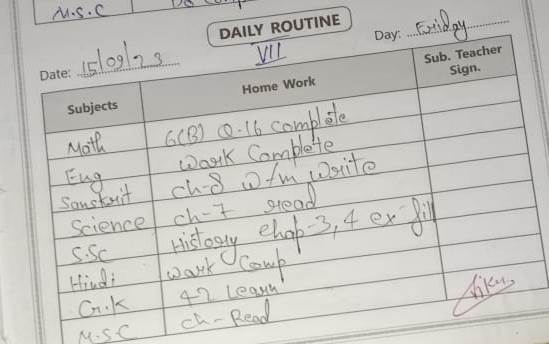 M.S.C
DAILY ROUTINE
VII
Date: 15/09/23 Day: Friday
Subjects Home Work Sub. Teacher Sign.
Math 6(B) Q-16 complete
Eng Work Complete
Sanskrit ch-8 w/m Write
Science ch-7 read
S.Sc History chap-3,4 ex-fill
Hindi Work Comp
G.K 42 Learn
M.S.C ch-Read